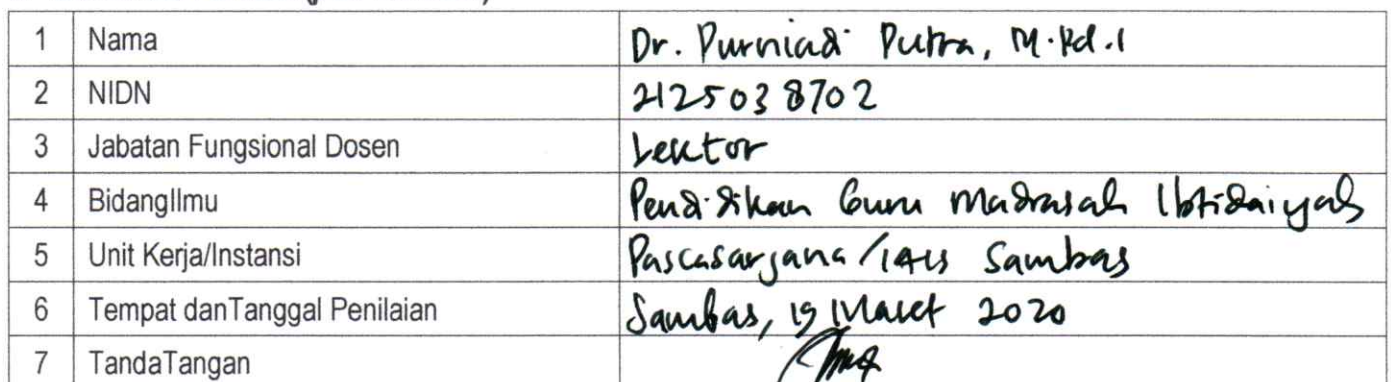 1 Nama Dr. Purniadi Putra, M.Pd.I
2 NIDN 2125038702
3 Jabatan Fungsional Dosen Lektor
4 BidangIlmu Pendidikan Guru Madrasah Ibtidaiyah
5 Unit Kerja/Instansi Pascasarjana/IAIS Sambas
6 Tempat danTanggal Penilaian Sambas, 19 Maret 2020
7 TandaTangan